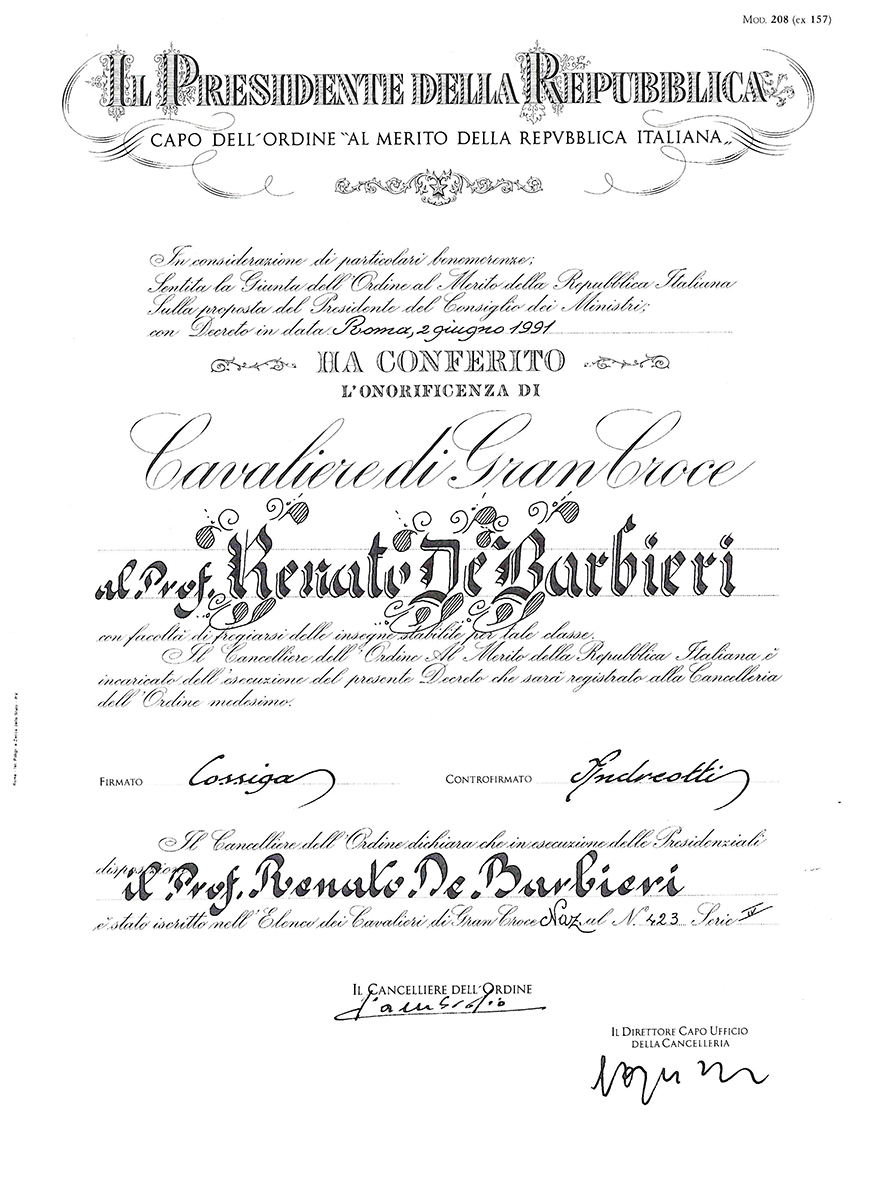 MOD. 208 (ex 157)
IL PRESIDENTE DELLA REPUBBLICA
CAPO DELL'ORDINE "AL MERITO DELLA REPVBBLICA ITALIANA„
In considerazione di particolari benemerenze;
Sentita la Giunta dell'Ordine al Merito della Repubblica Italiana
Sulla proposta del Presidente del Consiglio dei Ministri;
con Decreto in data Roma, 2 giugno 1991
HA CONFERITO
L'ONORIFICENZA DI
Cavaliere di Gran Croce
al Prof. Renato De Barbieri
con facoltà di fregiarsi delle insegne stabilite per tale classe.
Il Cancelliere dell'Ordine Al Merito della Repubblica Italiana è
incaricato dell'esecuzione del presente Decreto che sarà registrato alla Cancelleria
dell'Ordine medesimo.
FIRMATO Cossiga CONTROFIRMATO Andreotti
Il Cancelliere dell'Ordine dichiara che in esecuzione delle Presidenziali
disposizioni
il Prof. Renato De Barbieri
è stato iscritto nell'Elenco dei Cavalieri di Gran Croce Naz. al N. 423 Serie IV
IL CANCELLIERE DELL'ORDINE
IL DIRETTORE CAPO UFFICIO
DELLA CANCELLERIA